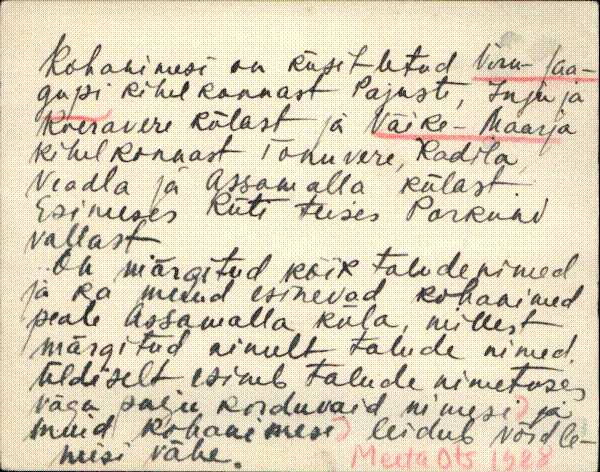 Kohanimesi on küsitletud Viru-Jaa-
gupi kihelkonnast Pajusti, Inju ja
Koeravere külast ja Väike-Maarja
kihelkonnast Tõnuvere, Kadila,
Veadla ja Assamalla külast.
Esimeses Küti teises Porkuni
vallast
On märgitud kõik taludenimed
ja ka muud esinevad kohanimed
peale Assamalla küla, millest
märgitud ainult talude nimed.
Üldiselt esineb talude nimetuses,
väga palju korduvaid nimesi, ja
muid kohanimesi leidub võrdle-
misi vähe.
Meeta Ots 1928